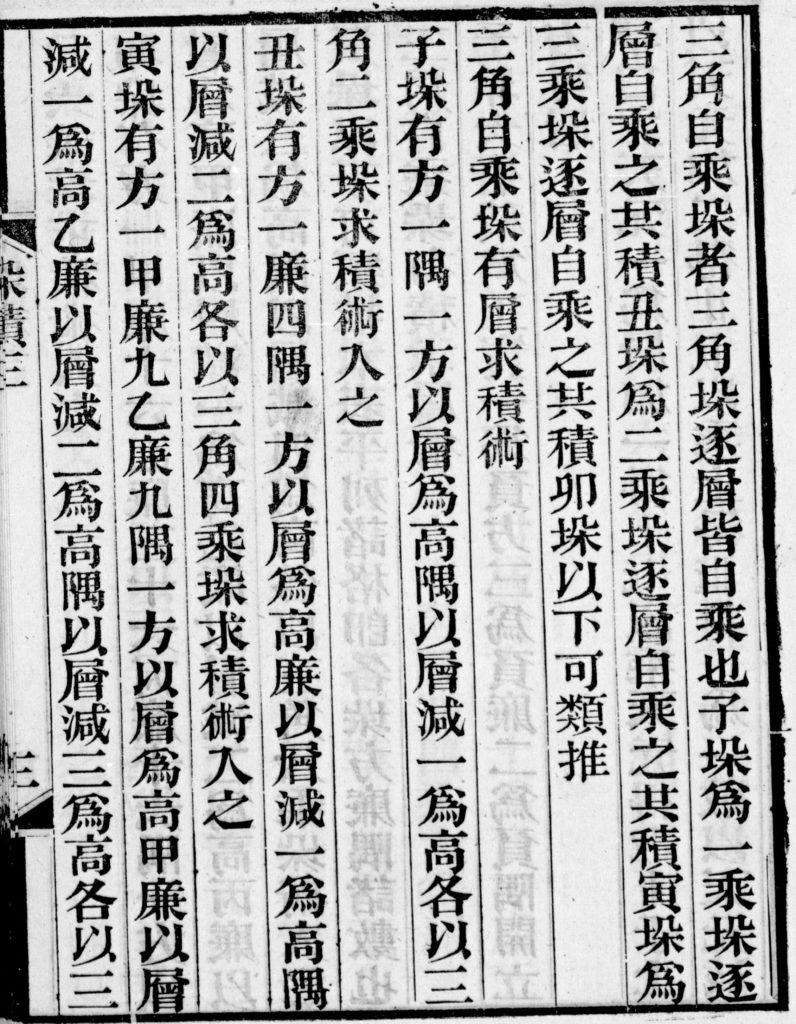 三角自乘垛者三角垛逐層皆自乘也子垛為一乘垛逐
層自乘之共積丑垛為二乘垛逐層自乘之共積寅垛為
三乘垛逐層自乘之共積卯垛以下可類推
三角自乘垛有層求積術
子垛有方一隅一方以層為高隅以層減一為高各以三
角二乘垛求積術入之
丑垛有方一廉四隅一方以層為高廉以層減一為高隅
以層減二為高各以三角四乘垛求積術入之
寅垛有方一甲廉九乙廉九隅一方以層為高甲廉以層
減一為高乙廉以層減二為高隅以層減三為高各以三
垛積三
三